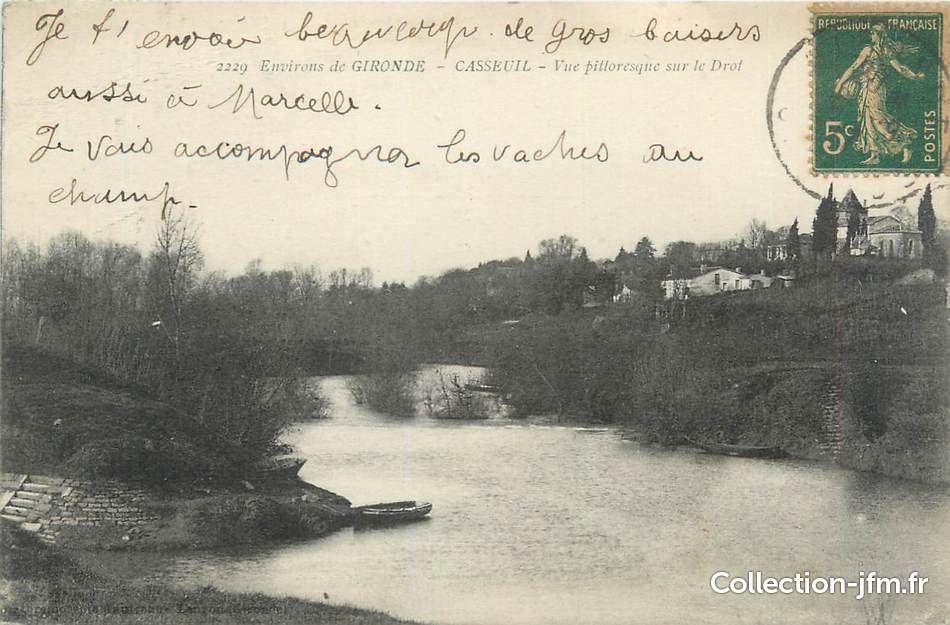 Je t'envoie beaucoup de gros baisers
2229 Environs de GIRONDE - CASSEUIL - Vue pittoresque sur le Drot
aussi à Marcelle.
Je vais accompagner les vaches au
champ.
REPUBLIQUE FRANÇAISE
5c
POSTES
Collection-jfm.fr